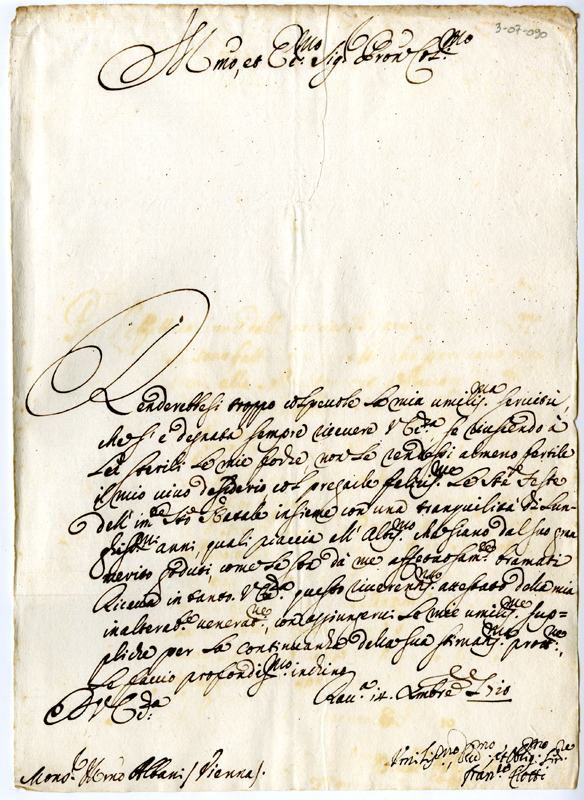 3-07-090
Ill.mo, et Ecc.mo Sig.r Pron Col.mo
Renderebbesi troppo colpevole la mia umilis.ma servitù,
che si è degnata sempre ricevere V. Ecc.za, se riuscendo à
Lei sterili le mie forze non le rendessi almeno fertile
il mio vivo desiderio col pregarle felicis.me le Ste Feste
dell' im.te Sto Natale insieme con una tranquilità di lun-
ghis.mi anni, quali piaccia all' Altis.mo che siano dal suo gran
merito goduti, come le sono da me affettuosam.te bramati
Riceva in tanto V. Ecc.za questo riverentis.mo attestato della mia
inalterab.e veneraz.ne, con aggiungervi le mie umilis.me sup=
pliche per la continuanza della sua stimatis.ma protez.ne,
Le faccio profondis.mo inchino
Di V. Ecc.za
Rav.a 10mbre 1710
Umilis.mo Dev.mo et Obblig.mo Ser.re
Fran.co
Mons.r Albani / Vienna /.